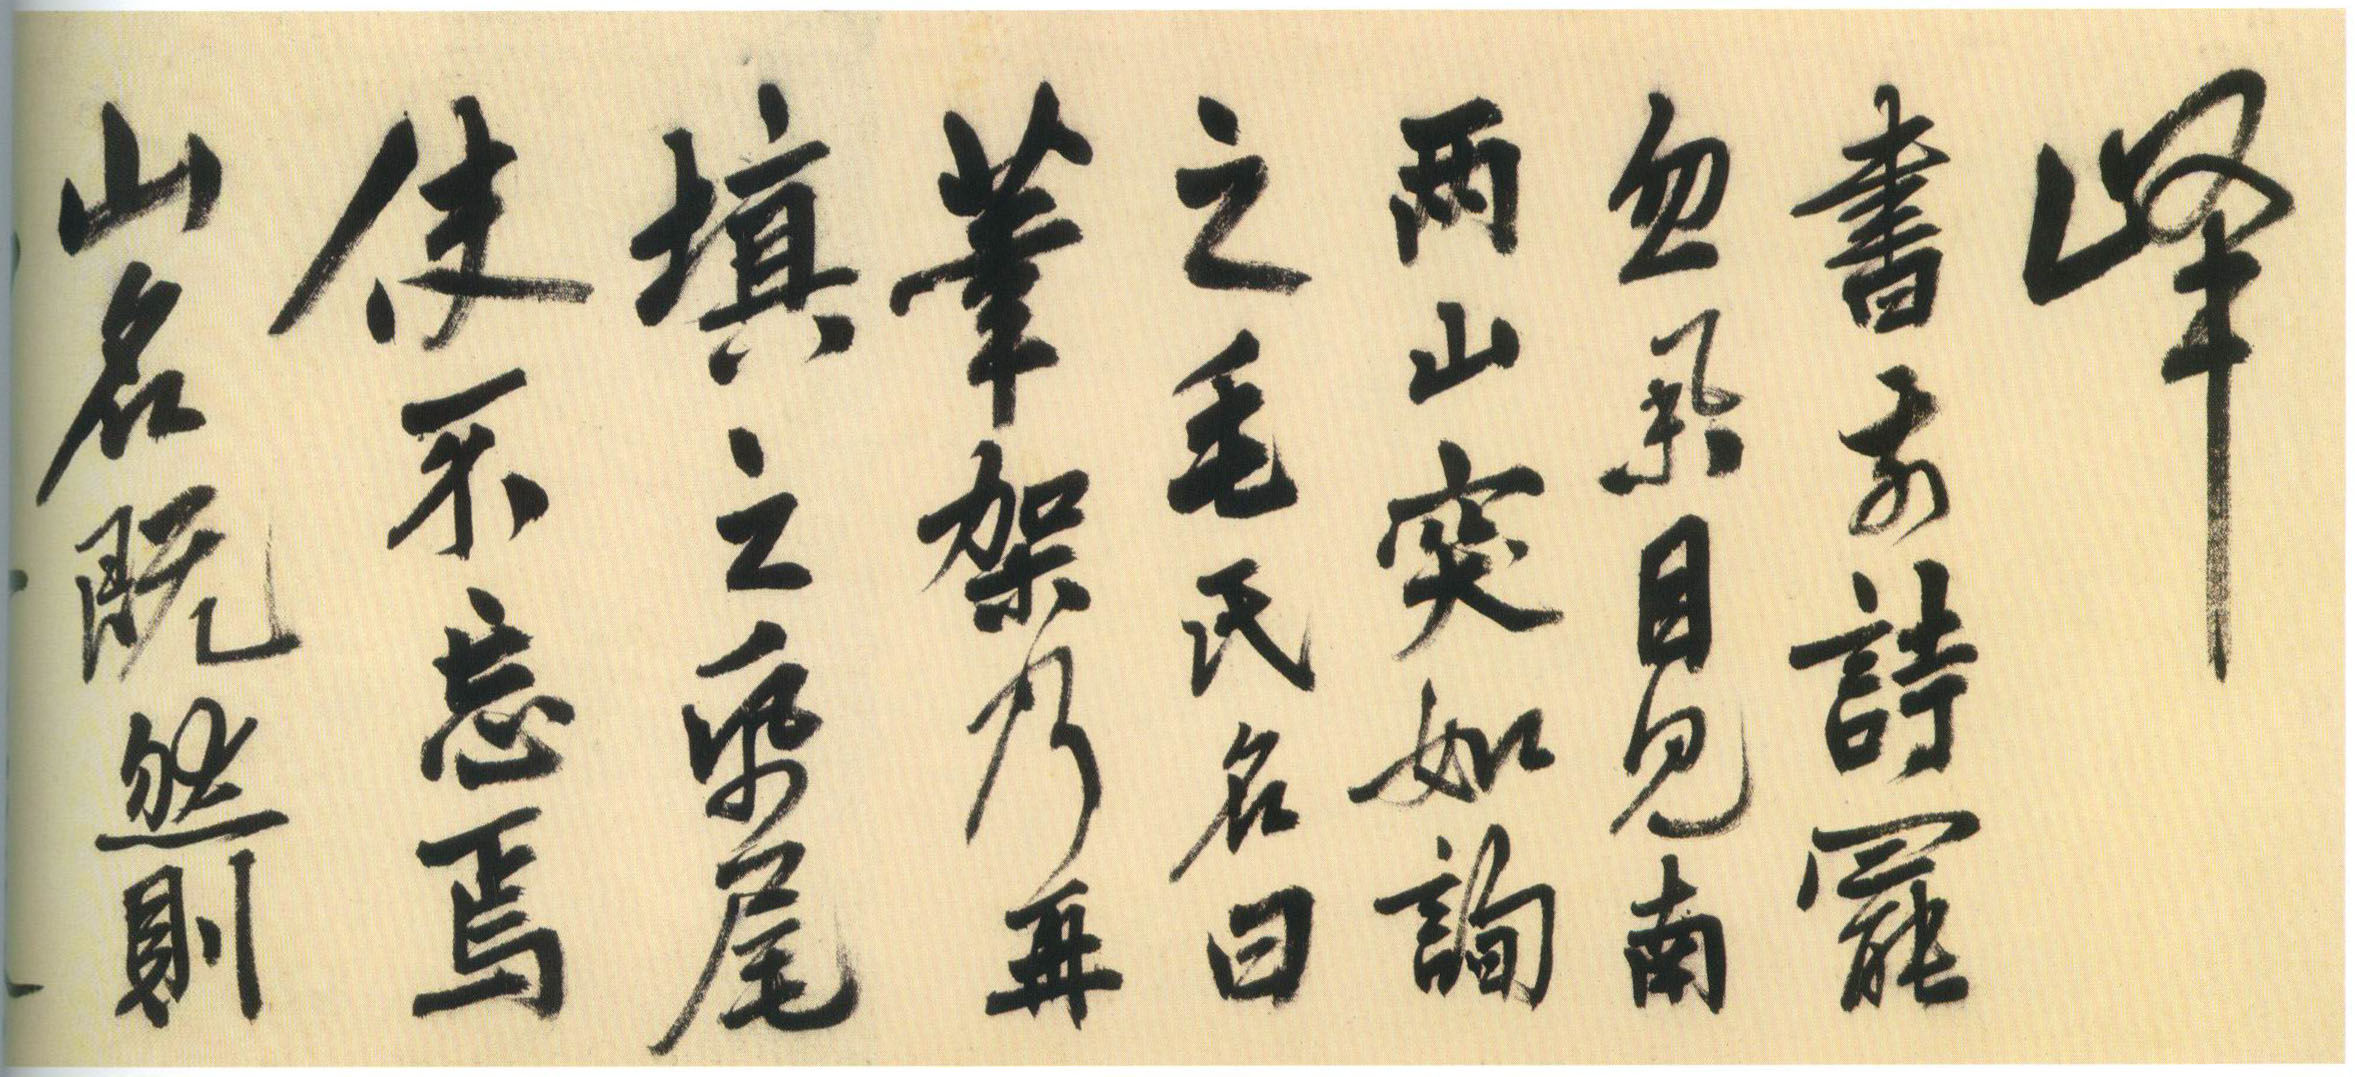 峰
書前詩罷
忽目見南
兩山突如詢
之毛氏名曰
筆架乃再
填之帋尾
使不忘焉
山名既然則